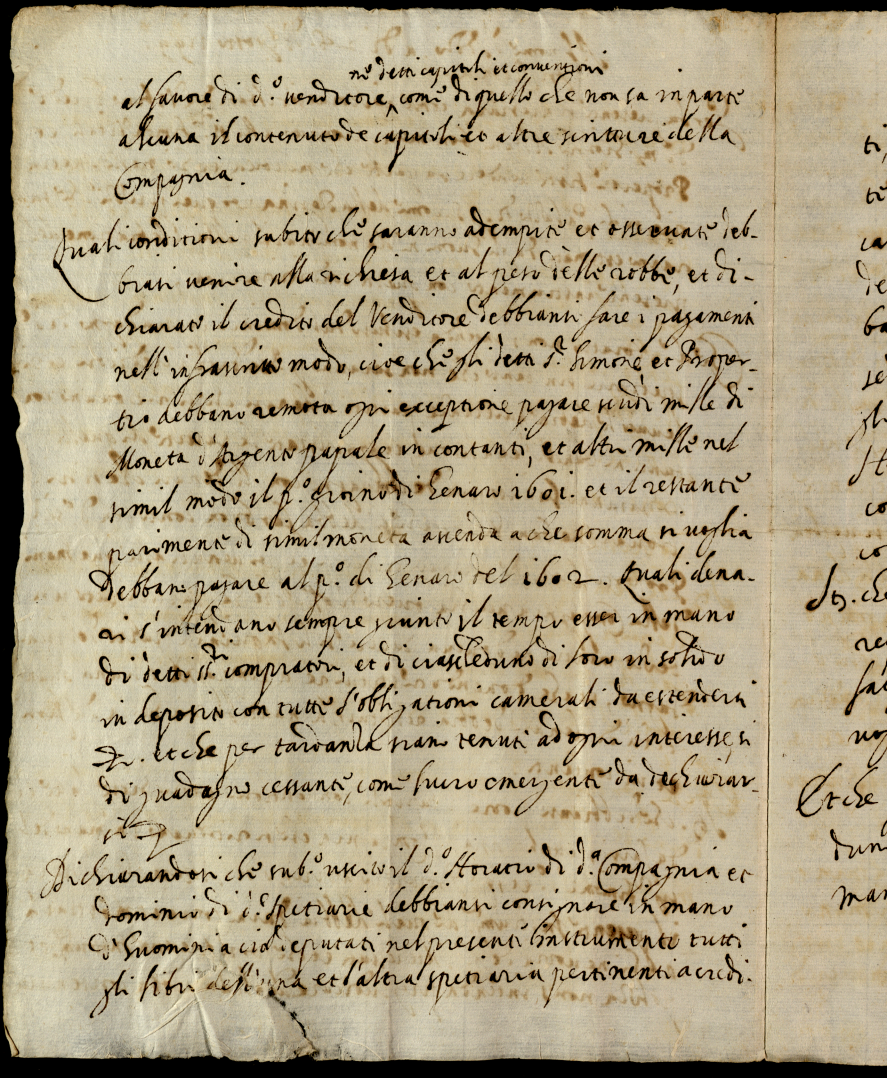 ne detti capituli et conventioni
al favore di d.º venditore, come di quello che non sa in parte
alcuna il contenuto de capitoli et altre scritture della
Compagnia.
Quali conditioni subito che saranno adempite et osservate deb-
biasi venire alla richiesa et al peso delle robbe, et di-
chiarato il credito del Venditore debbiansi fare i pagamenti
nell'infrascritto modo, cioe che gli detti s.ri Simone et Proper-
tio debbano remota ogni exceptione pagare scudi mille di
Moneta d'Argento papale in contanti, et altri mille nel
simil modo il p.º giorno di Genaro 1601. et il restante
parimente di simil moneta ascenda a che somma si voglia
debbano pagare al p.º di Genaro del 1602. Quali dena-
ri s'intendano sempre giunto il tempo esser in mano
di detti ss.ri compratori, et di ciascheduno di loro in solido
in deposito con tutte l'obligationi camerali da estendersi
&. et che per tardanza siano tenuti ad ogni interesse, si
di guadagno cessante, come lucro emergente da dechiarar-
si &
Dichiarandosi che sub.º uscito il d.º Horatio di d.ª Compagnia et
dominio di d.e Spetiarie debbiansi consignare in mano
d'huomini a ciò deputati nel presente instrumento tutti
gli libri dell'una et l'altra spetiaria pertinenti a credi-
ti,
te
ca
de
ba
se
gli
co
co
It. che
re
fa
vog
Et che
dun
man